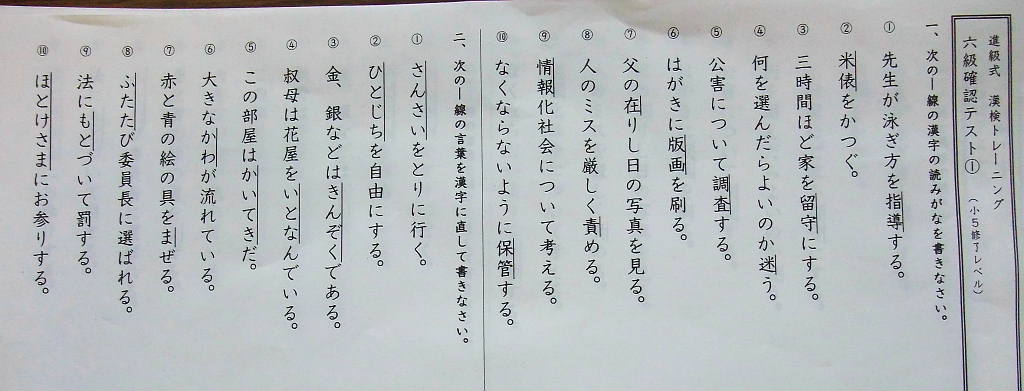 進級式 漢検トレーニング
六級確認テスト① (小5修了レベル)
一、次の―線の漢字の読みがなを書きなさい。
① 先生が泳ぎ方を指導する。
② 米俵をかつぐ。
③ 三時間ほど家を留守にする。
④ 何を選んだらよいのか迷う。
⑤ 公害について調査する。
⑥ はがきに版画を刷る。
⑦ 父の在りし日の写真を見る。
⑧ 人のミスを厳しく責める。
⑨ 情報化社会について考える。
⑩ なくならないように保管する。
二、次の―線の言葉を漢字に直して書きなさい。
① さんさいをとりに行く。
② ひとじちを自由にする。
③ 金、銀などはきんぞくである。
④ 叔母は花屋をいとなんでいる。
⑤ この部屋はかいてきだ。
⑥ 大きなかわが流れている。
⑦ 赤と青の絵の具をまぜる。
⑧ ふたたび委員長に選ばれる。
⑨ 法にもとづいて罰する。
⑩ ほとけさまにお参りする。